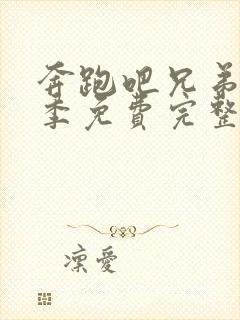 奔跑吧兄弟
季免费完整
凛爱